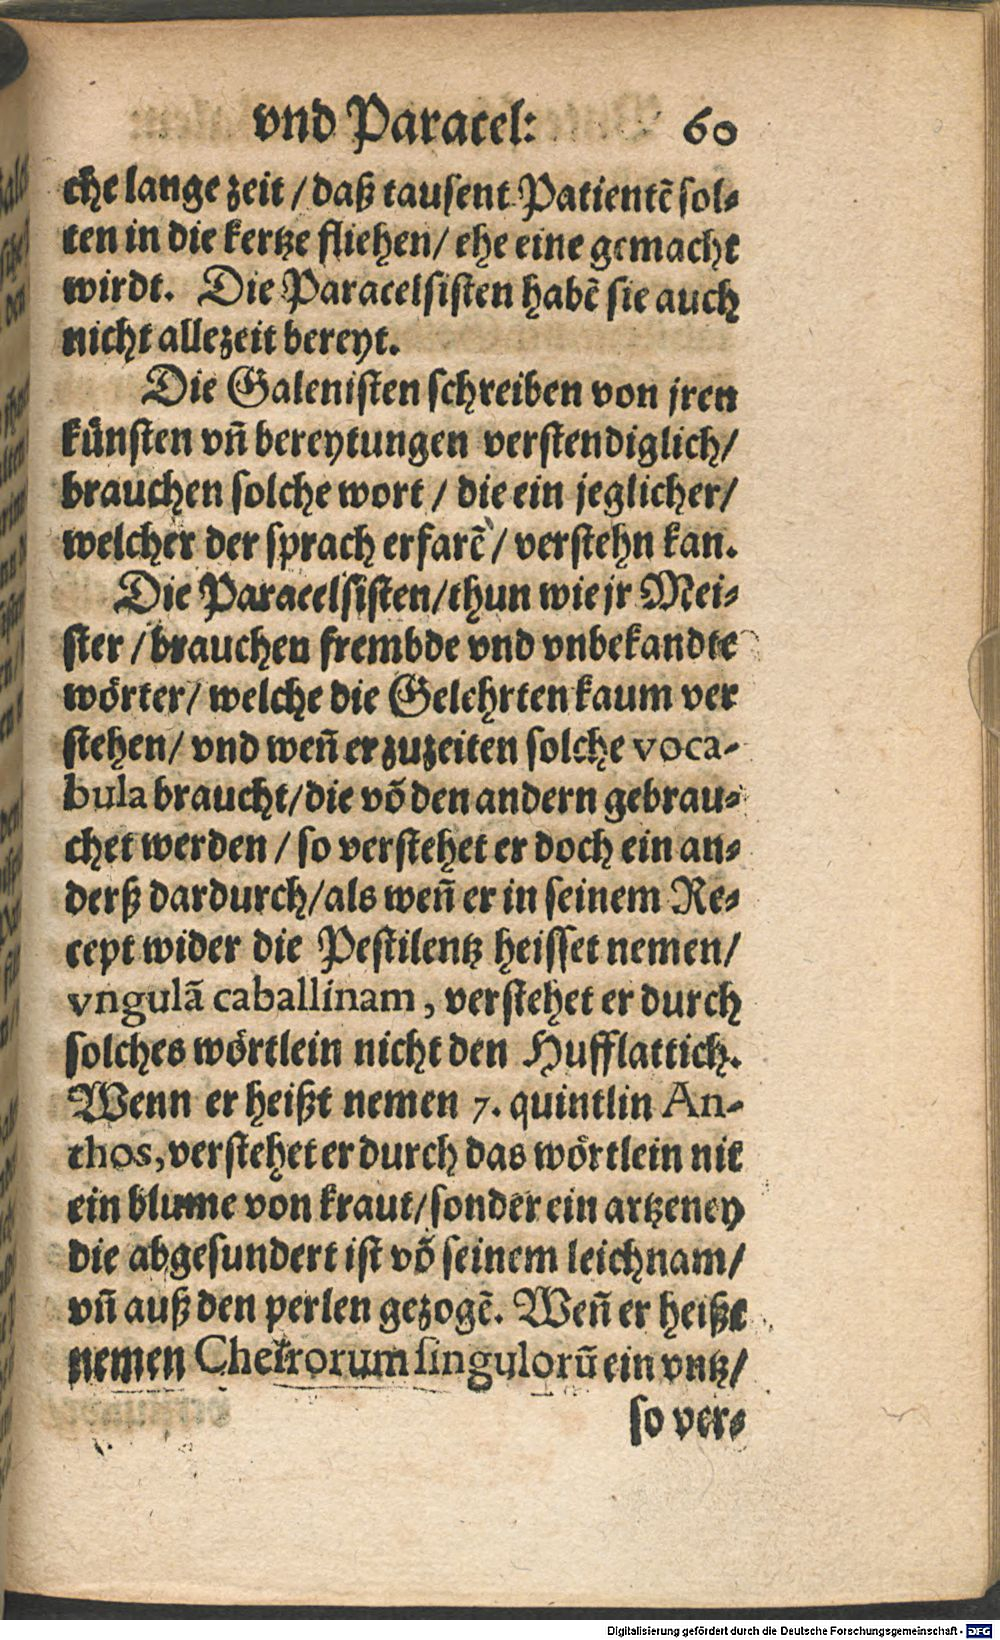 vnd Paracel: 60
che lange zeit / daß tausent Patientẽ sol⸗
ten in die kertze fliehen/ ehe eine gemacht
wirdt. Die Paracelsisten habẽ sie auch
nicht allezeit bereyt.
Die Galenisten schreiben von jren
kůnsten vñ bereytungen verstendiglich/
brauchen solche wort / die ein jeglicher/
welcher der sprach erfarẽ / verstehn kan.
Die Paracelsisten/thun wie jr Mei⸗
ster / brauchen frembde vnd vnbekandte
wörter/ welche die Gelehrten kaum ver
stehen/ vnd weñ er zuzeiten solche voca-
bula braucht/die võ den andern gebrau⸗
chet werden / so verstehet er doch ein an⸗
derß dardurch/als weñ er in seinem Re⸗
cept wider die Pestilentz heisset nemen/
vngulã caballinam, verstehet er durch
solches wörtlein nicht den Hufflattich.
Wenn er heißt nemen 7. quintlin An-
thos, verstehet er durch das wörtlein nit
ein blume von kraut/sonder ein artzeney
die abgesundert ist võ seinem leichnam/
vñ auß den perlen gezogẽ. Weñ er heißt
nemen Cheirorum singulorũ ein vntz/
so ver⸗
Digitalisierung gefördert durch die Deutsche Forschungsgemeinschaft - DFG